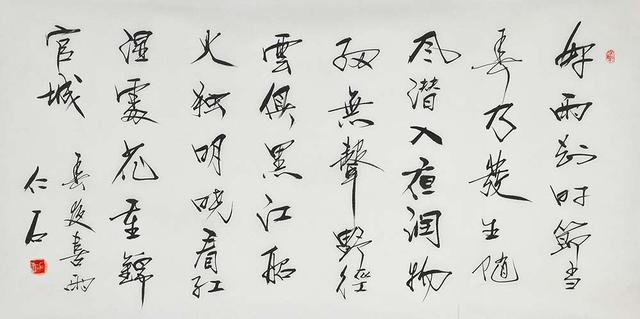 好雨知时節当
春乃發生随
风潜入夜润物
细無聲野徑
雲俱黑江船
火独明晓看红
湿處花重錦
官城
春夜喜雨
仁石